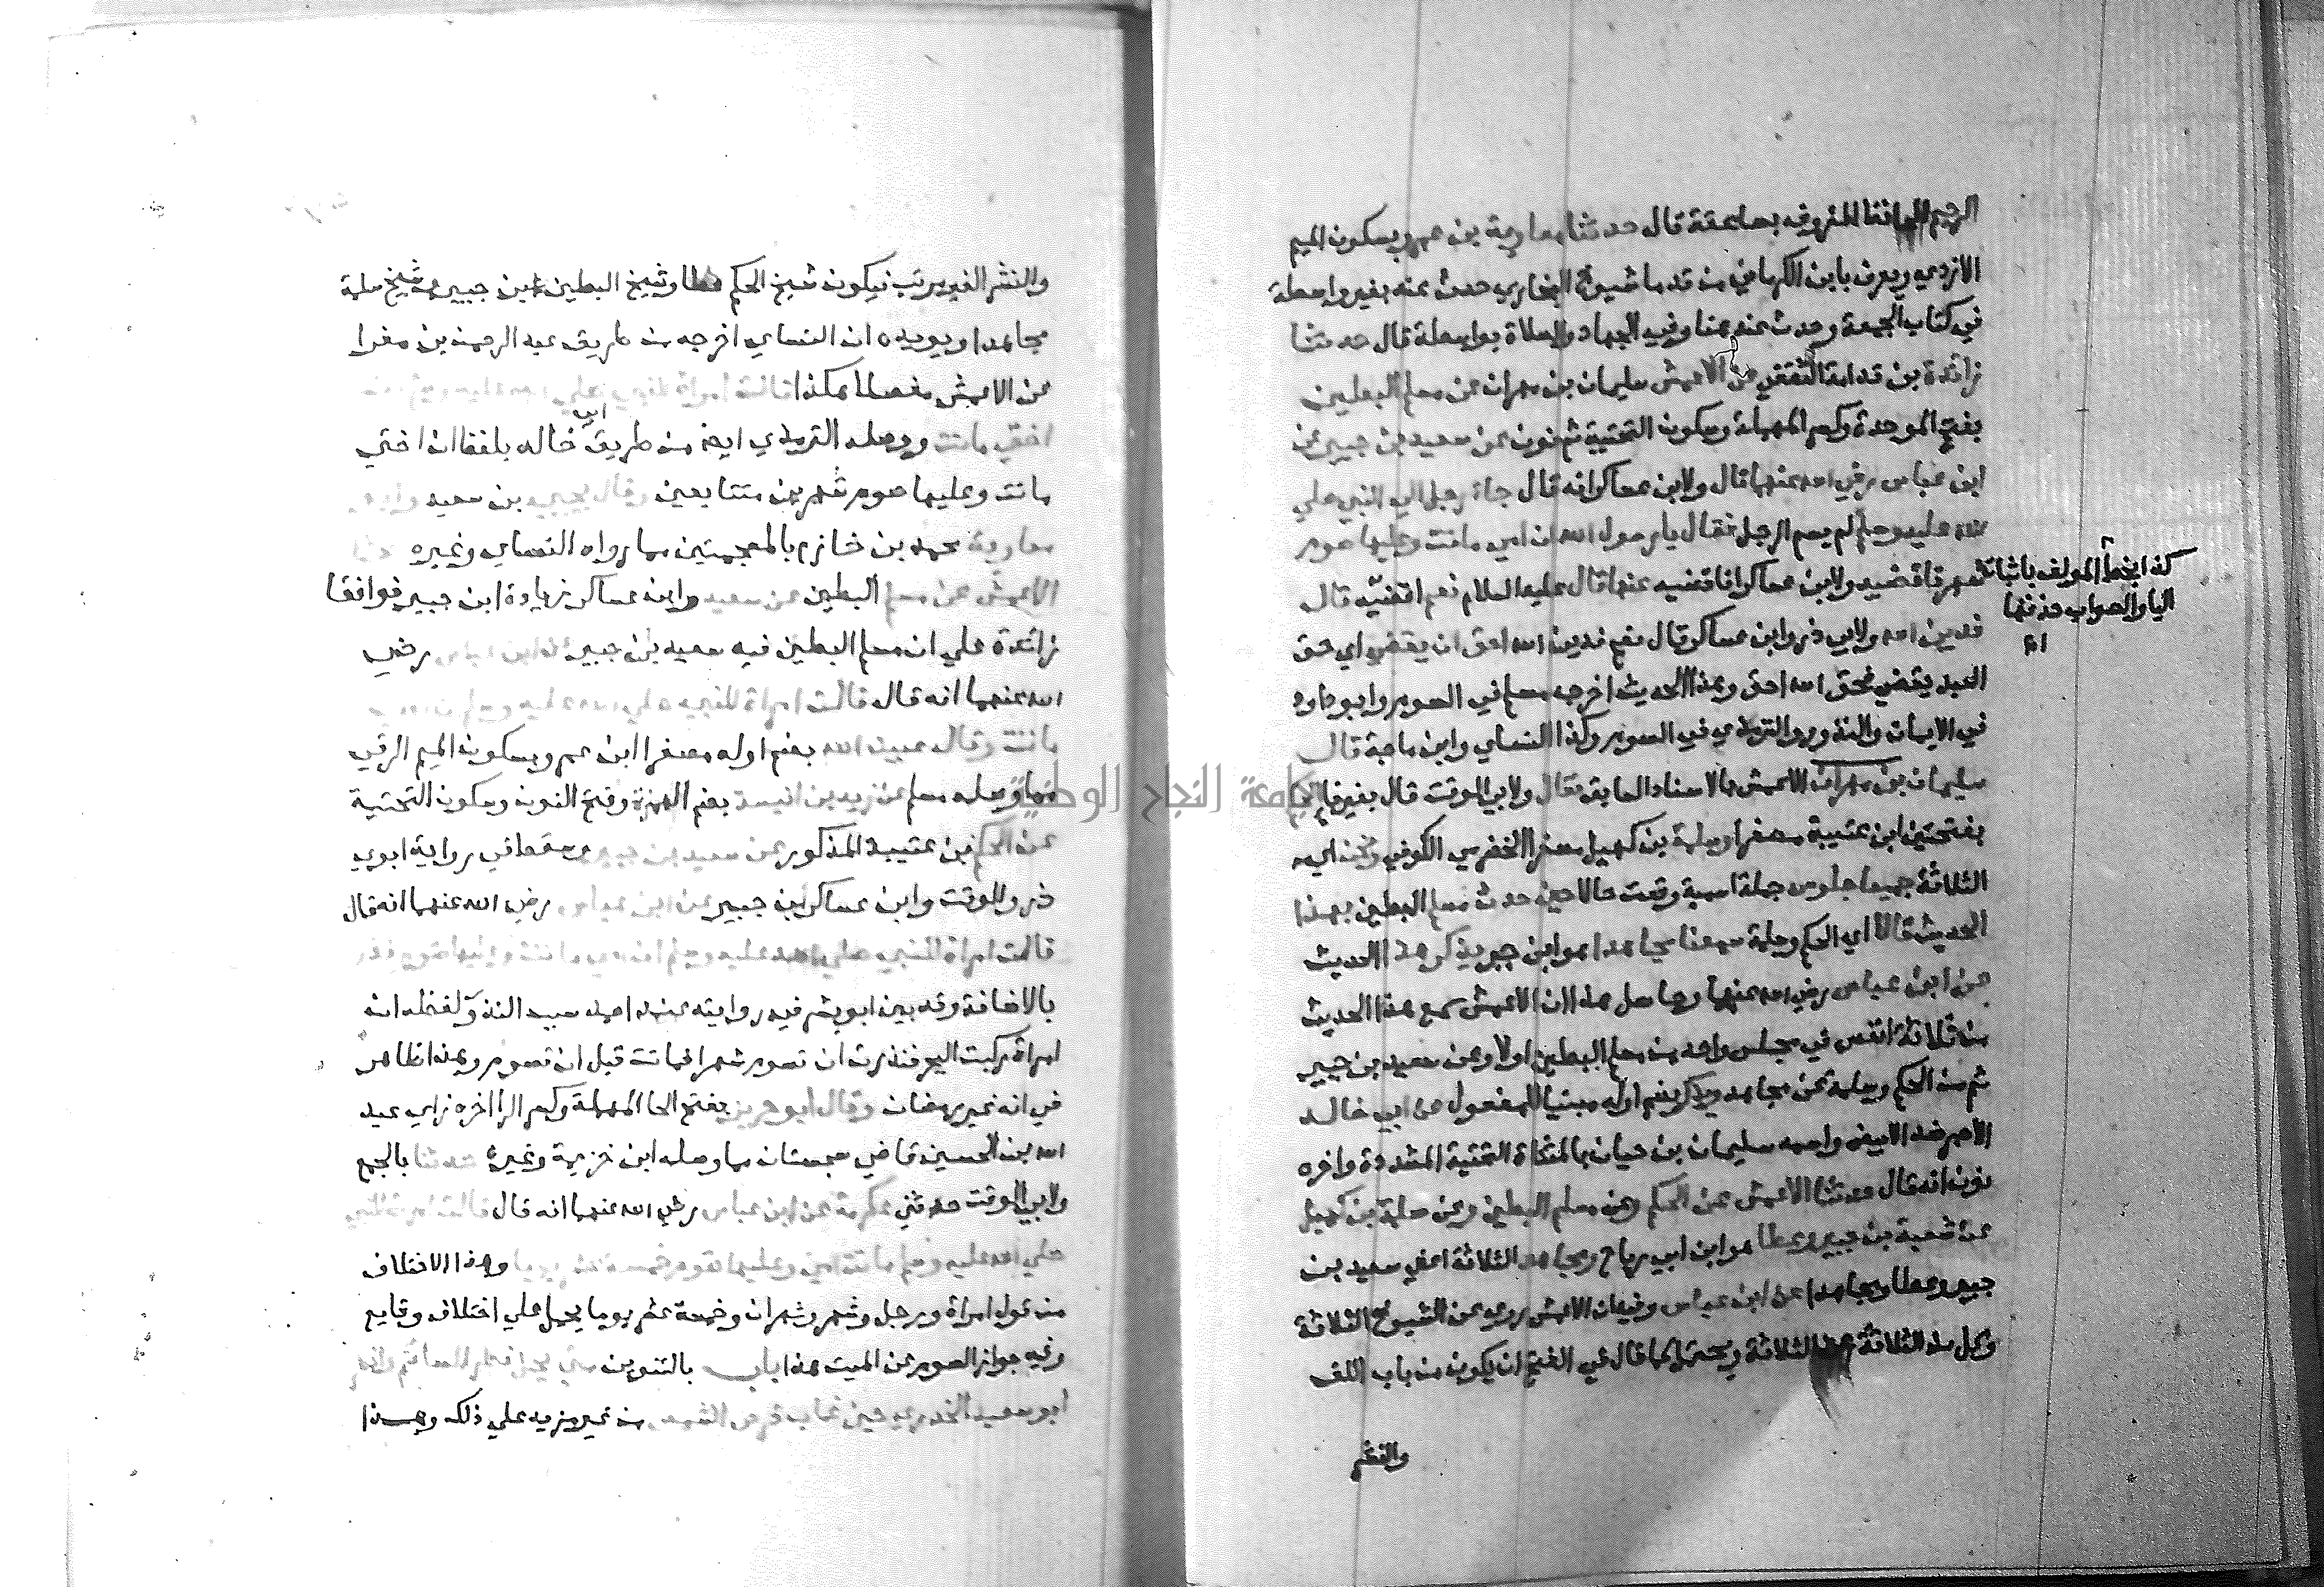 الرحيم الحافظ المعروف بصاعقة قال حدثنا معاوية بن عمرو بسكون الميم
الازدي ويعرف بابن الكرماني من قدما شيوخ البخاري حدث عنه بغير واسطة
في كتاب الجمعة وحدث عنه هنا وفي الجهاد والصلاة بواسطة قال حدثنا
زائدة بن قدامة الثقفي عن الاعمش سليمان بن مهران عن مسلم البطين
بفتح الموحدة وكسر المهملة وسكون التحتية ثم نون عن سعيد بن جبير عن
ابن عباس رضي الله عنهما قال ولابن عساكر انه قال جاء رجل الي النبي صلي
الله عليه وسلم لم يسم الرجل فقال يا رسول الله ان امي ماتت وعليها صوم
شهر فاقضيه ولابن عساكر افاقضيه عنها قال عليه السلام نعم اقضيه قال
كذا بخط المولف باثبات
اليا والصواب حذفها
اه
فدين الله ولابي ذر وابن عساكر قال نعم فدين الله احق ان يقضي اي حق
العبد يقضي فحق الله احق وهذا الحديث اخرجه مسلم في الصوم وابو داود
في الايمان والنذور والترمذي في الصوم وكذا النساي وابن ماجة قال
سليمان بن مهران الاعمش بالاسناد السابق فقال ولابي الوقت قال بغير فا
بفتحتين ابن عتيبة مصغرا وسلمة بن كهيل مصغرا الحضرمي الكوفي ونحن اي
الثلاثة جميعا جلوس جملة اسمية وقعت حالا حين حدث مسلم البطين بهذا
الحديث قالا اي الحكم وسلمة سمعنا مجاهدا هو ابن جبر يذكر هذا الحديث
عن ابن عباس رضي الله عنهما وحاصل هذا ان الاعمش سمع هذا الحديث
من ثلاثة انفس في مجلس واحد من مسلم البطين اولا وعن سعيد بن جبير
ثم من الحكم وسلمة عن مجاهد ويذكر بضم اوله مبنيا للمفعول عن ابي خالد
الاحمر ضد الابيض واسمه سليمان بن حيان بالمثناة التحتية المشددة واخره
نون انه قال حدثنا الاعمش عن الحكم وعن مسلم البطين وعن سلمة بن كهيل
عن سعيد بن جبير وعطا هو ابن ابي رباح ومجاهد الثلاثة اعني سعيد بن
جبير وعطا ومجاهدا عن ابن عباس وفيه ان الاعمش روي عن الشيوخ الثلاثة
وكل من الثلاثة عن الثلاثة ويحتمل كما قال في الفتح ان يكون من باب اللف
والنشر
والنشر الغير مرتب فيكون شيخ الحكم عطا وشيخ البطين ابن جبير وشيخ سلمة
مجاهدا ويويده ان النساي اخرجه من طريق عبد الرحمن بن مغرا
عن الاعمش مفصلا هكذا قالت امراة للنبي صلي الله عليه وسلم ان
اختي ماتت ووصله الترمذي ايضا من طريق ابي خالد بلفظ ان اختي
ماتت وعليها صوم شهرين متتابعين وقال يحيي بن سعيد وابو
معاوية محمد بن خازم بالمعجمتين مما رواه النساي وغيره
الاعمش عن مسلم البطين عن سعيد وابن عساكر بزيادة ابن جبير فوافقا
زائدة علي ان مسلم البطين فيه سعيد بن جبير عن ابن عباس رضي
الله عنهما انه قال قالت امراة للنبي صلي الله عليه وسلم ان امي
ماتت وقال عبيد الله بضم اوله مصغرا ابن عمرو بسكون الميم الرقي
مما وصله مسلم عن زيد بن ابي انيسة بضم الهمزة وفتح النون وسكون التحتية
عن الحكم بن عتيبة المذكور عن سعيد بن جبير وسقط في رواية ابوي
ذر والوقت وابن عساكر ابن جبير عن ابن عباس رضي الله عنهما انه قال
قالت امراة للنبي صلي الله عليه وسلم ان امي ماتت وعليها صوم نذر
بالاضافة وقد بين ابو بشر في روايته عند احمد سبب النذر ولفظه ان
امراة ركبت البحر فنذرت ان تصوم شهرا فماتت قبل ان تصوم وهذا ظاهر
في انه غير رمضان وقال ابو حريز بفتح الحا المهملة وكسر الرا اخره زاي عبد
الله بن الحسين قاضي سجستان مما وصله ابن خزيمة وغيره حدثنا بالجمع
ولابي الوقت حدثني عكرمة عن ابن عباس رضي الله عنهما انه قال قالت امراة للنبي
صلي الله عليه وسلم ماتت امي وعليها صوم خمسة عشر يوما وهذا الاختلاف
من قول امراة ورجل وشهر وشهران وخمسة عشر يوما يحمل علي اختلاف وقايع
وفيه جواز الصوم عن الميت هذا باب بالتنوين متي يحل فطر الصائم وافطر
ابو سعيد الخدري حين غاب قرص الشمس من غير مزيد علي ذلك وهذا
جامعة النجاح الوطنية